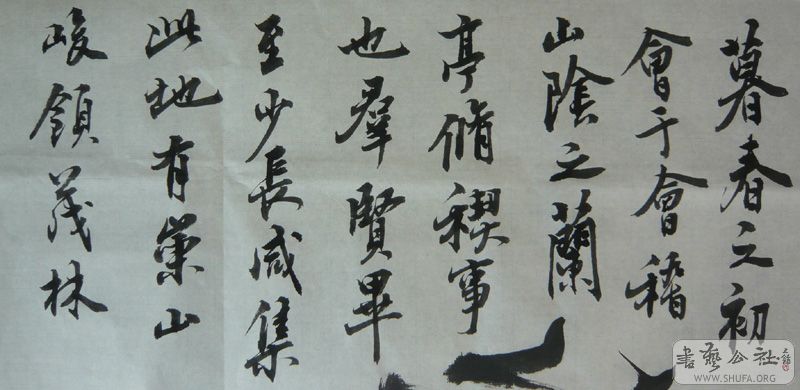 暮春之初
會于會稽
山陰之蘭
亭脩稧事
也羣賢畢
至少長咸集
此地有崇山
峻領茂林
書藝公社
WWW.SHUFA.ORG